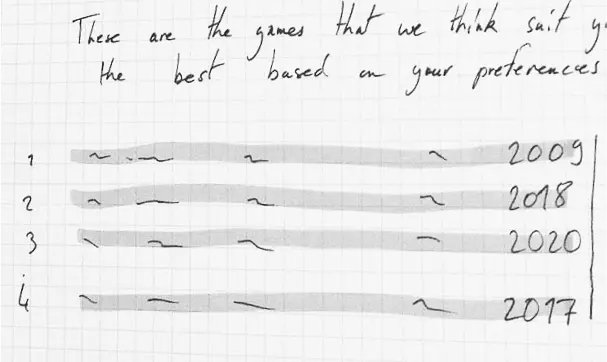 These are the games that we think suit
the best based on your preferences
1 2009
2 2018
3 2020
4 2017